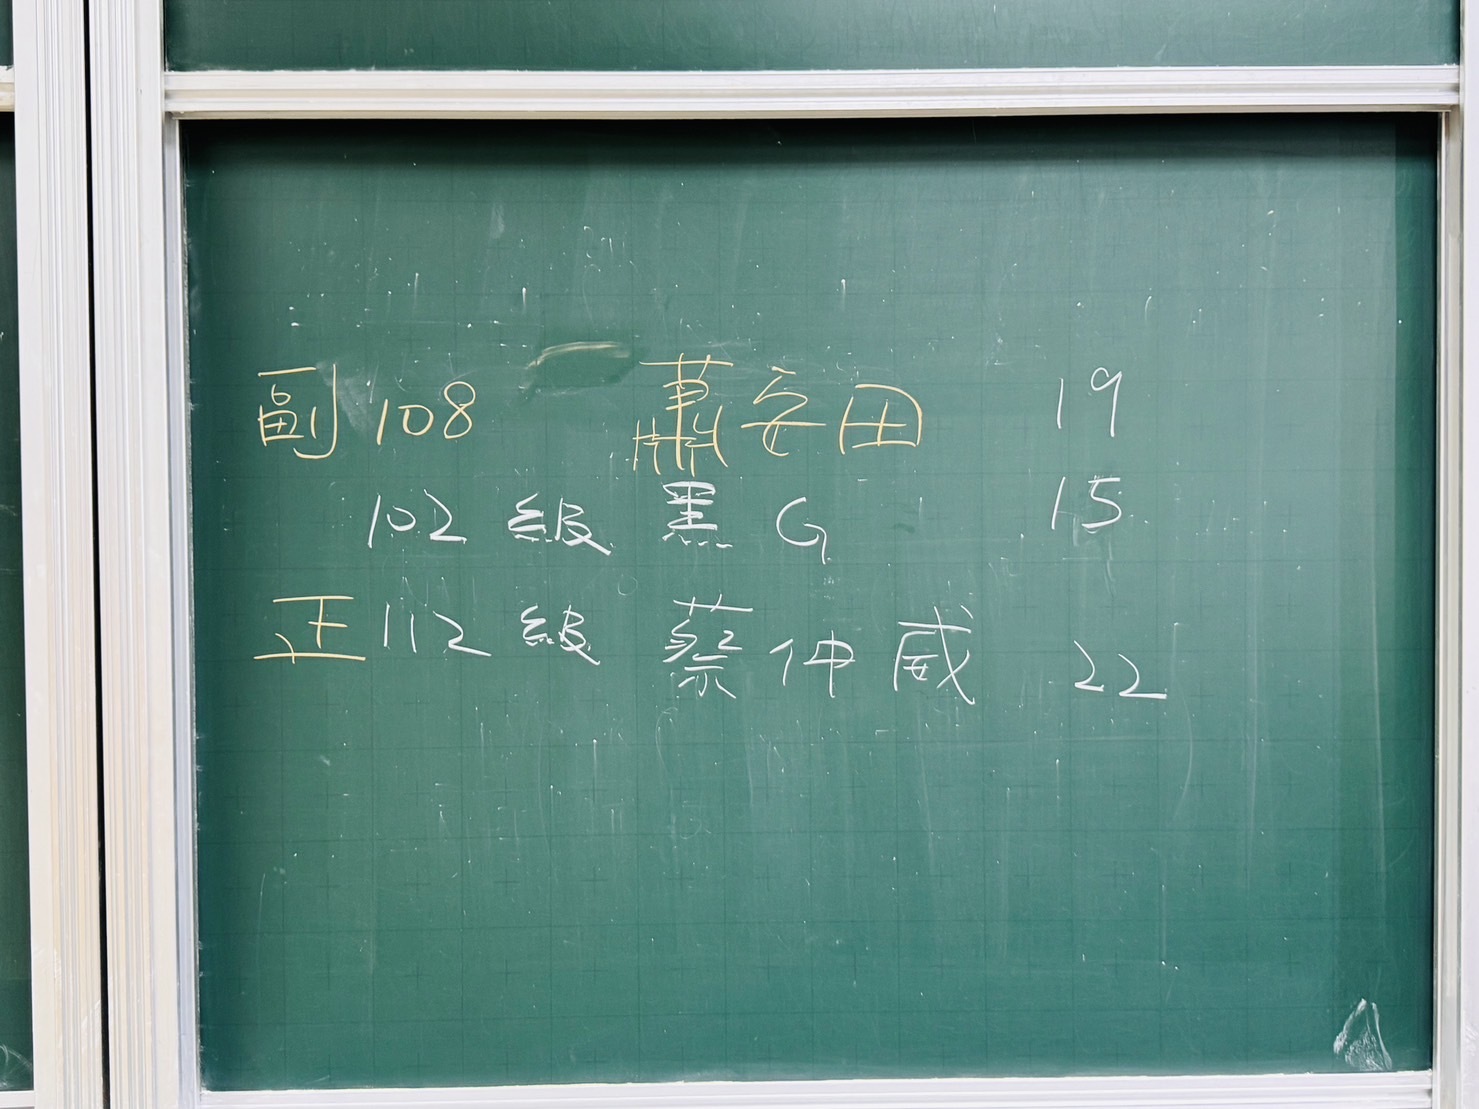 副 108 蕭安田 19
102 級 黑 G 15
正 112 級 蔡仲威 22